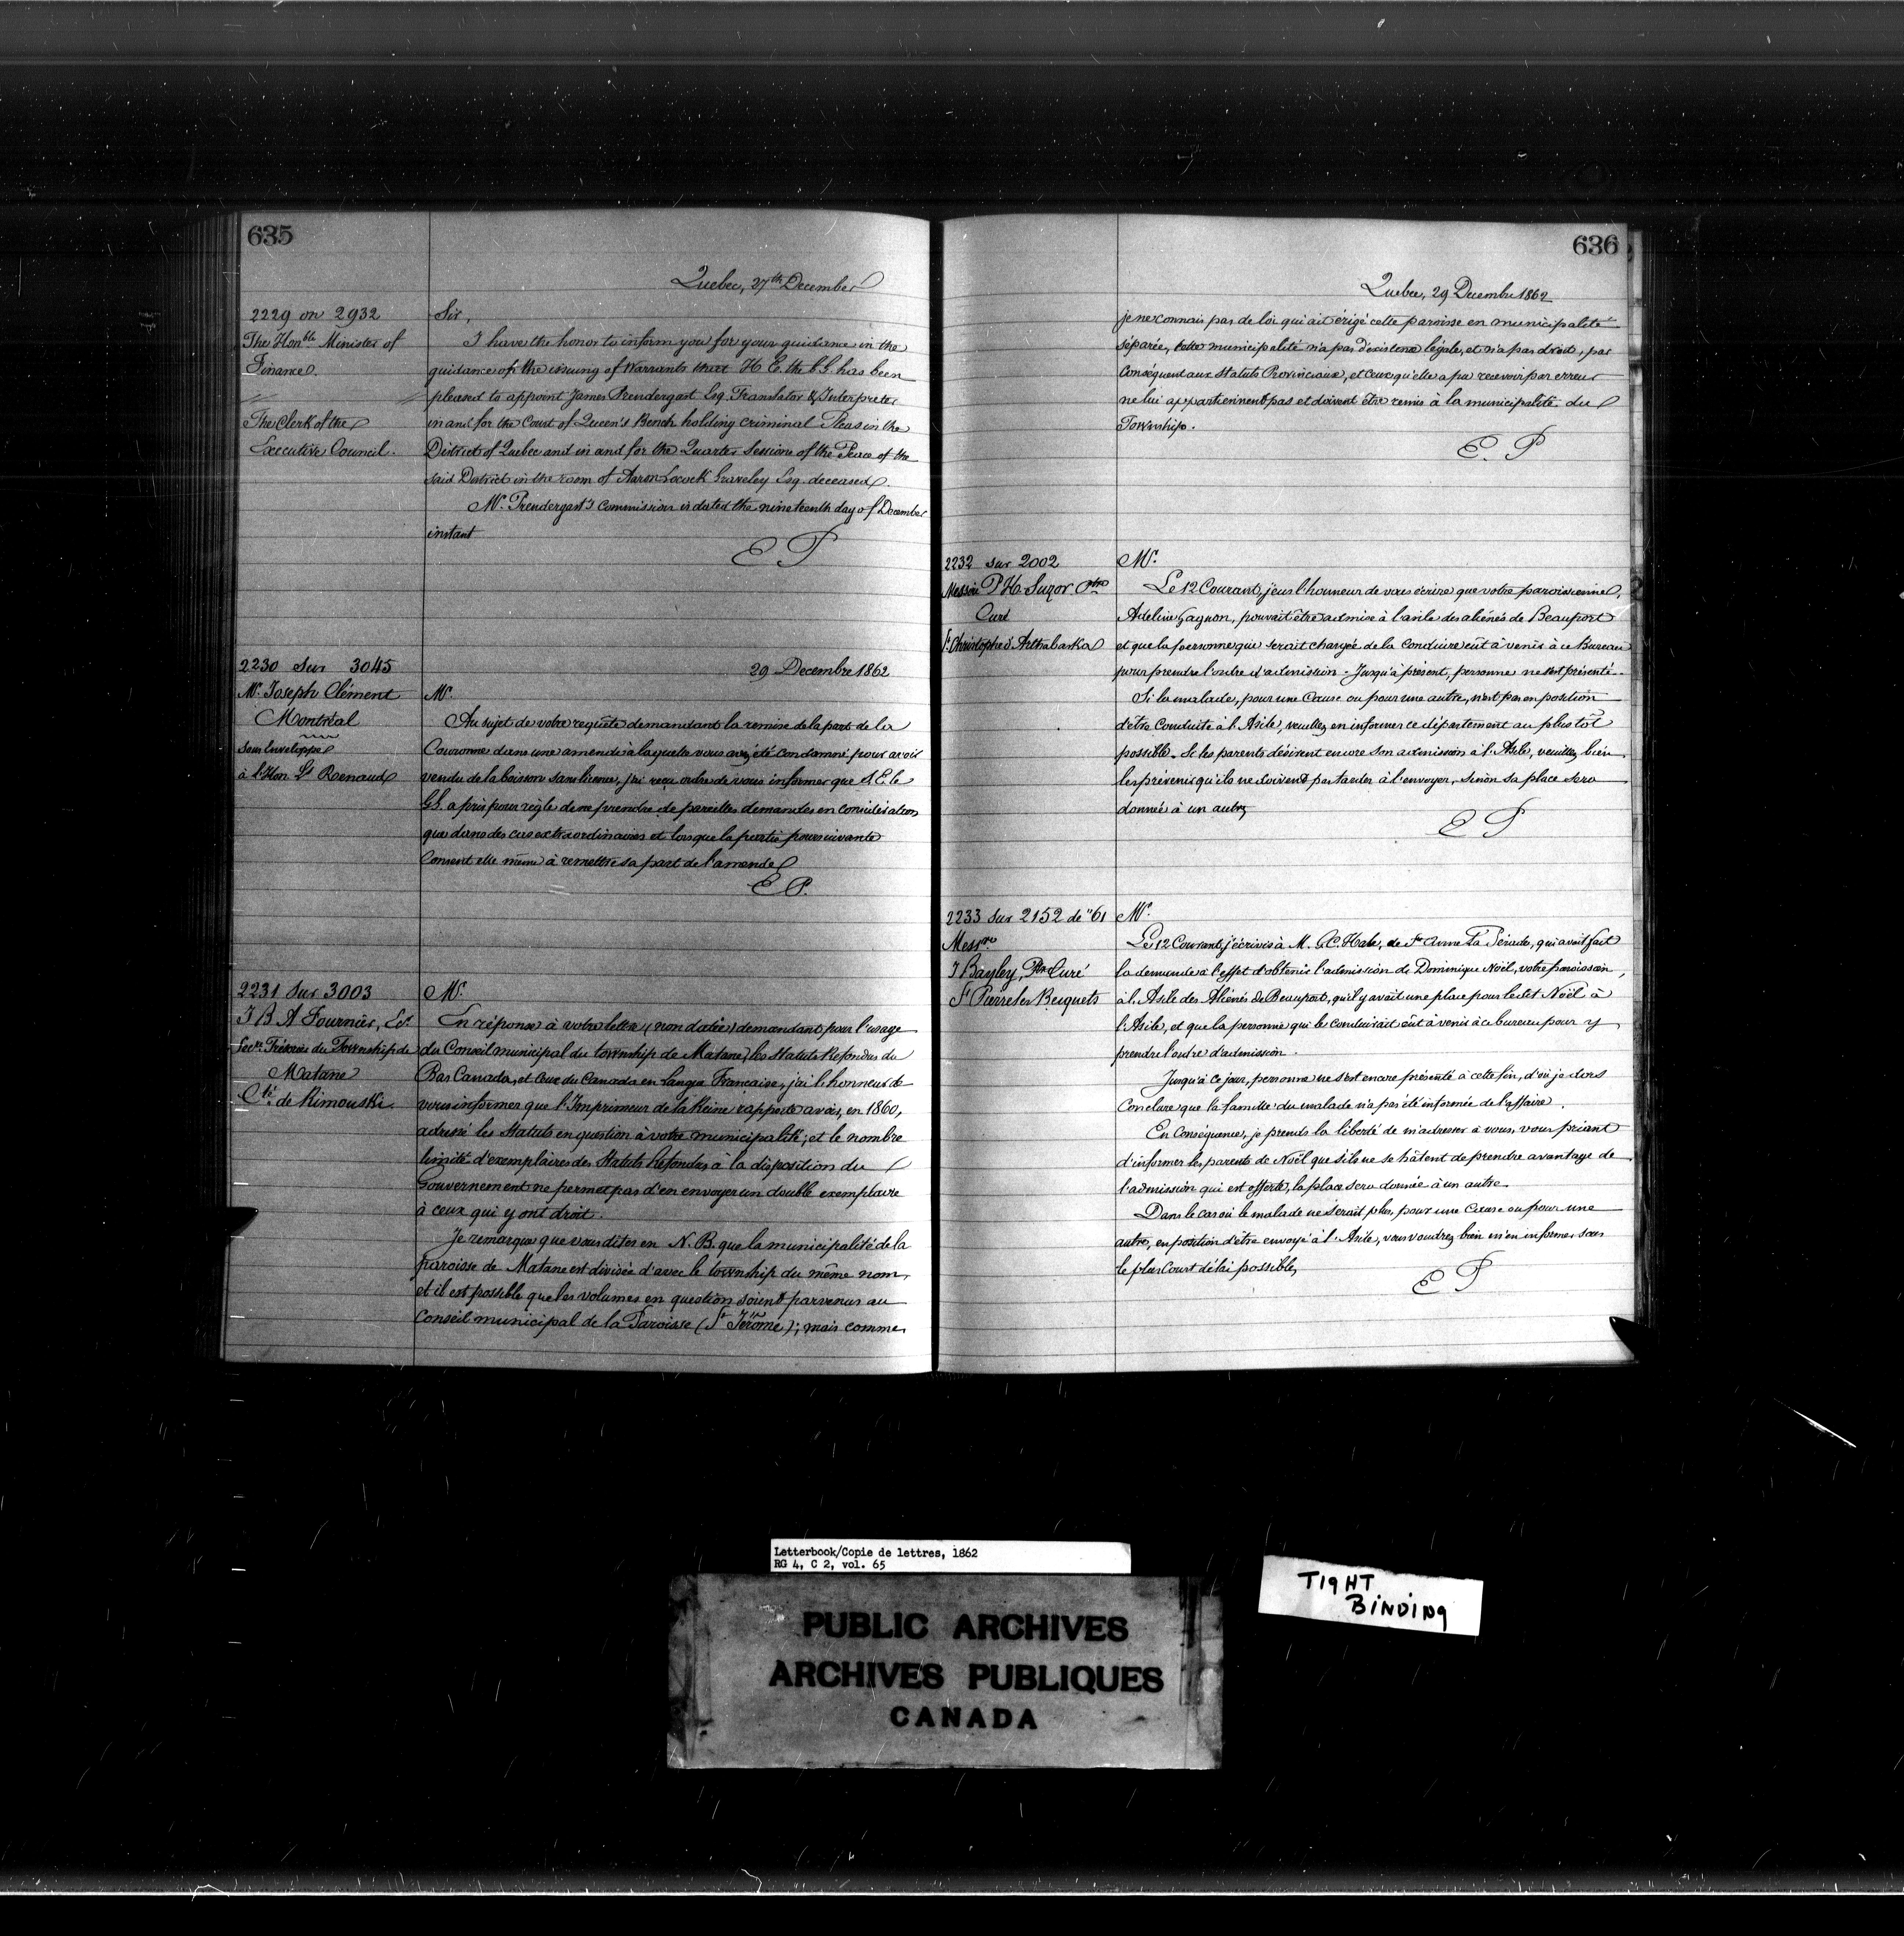 635
Quebec, 27th December
2229 on 2932
The Honble Minister of
Finance.
The Clerk of the
Executive Council.
Sir,
I have the honor to inform you for your guidance in the
guidance of the issuing of Warrants that H. E. the G.G. has been
pleased to appoint James Prendergast Esq. Translator & Interpreter
in and for the Court of Queen's Bench holding criminal Pleas in the
District of Quebec and in and for the Quarter Sessions of the Peace of the
said District in the room of Aaron Locock Graveley Esq. deceased.
Mr. Prendergast's commission is dated the nineteenth day of December
instant
E P
2230 sur 3045
Mr. Joseph Clément
Montréal
sous enveloppe
à l'Hon. Ls Renaud
29 Decembre 1862
Mr.
Au sujet de votre requête demandant la remise de la part de la
Couronne dans une amende à laquelle vous avez été condamné pour avoir
vendu de la boisson sans licence, j'ai reçu ordre de vous informer que S. E. le
G.G. a pris pour règle de ne prendre de pareilles demandes en considération
que dans des cas extraordinaires et lorsque la partie poursuivante
consent elle même à remettre sa part de l'amende
E P.
2231 sur 3003
J B A Fournier, Ecr
Secre Trésorier du Township de
Matane
Cté de Rimouski.
Mr.
En réponse à votre lettre (non datée) demandant pour l'usage
du Conseil municipal du township de Matane, les Statuts Refondus du
Bas Canada, et ceux du Canada en langue Francaise, j'ai l'honneur de
vous informer que l'Imprimeur de la Reine rapporte avoir, en 1860,
adressé les Statuts en question à votre municipalité; et le nombre
limité d'exemplaires des Statuts Refondus à la disposition du
Gouvernement ne permet pas d'en envoyer un double exemplaire
à ceux qui y ont droit.
Je remarque que vous dites en N.B. que la municipalité de la
paroisse de Matane est divisée d'avec le township du même nom,
et il est possible que les volumes en question soient parvenus au
Conseil municipal de la Paroisse (St Jérome); mais comme
636
Quebec, 29 Decembre 1862
je ne connais pas de loi qui ait érigé cette paroisse en municipalité
séparée, cette municipalité n'a pas d'existence légale, et n'a pas droit, par
conséquent aux Statuts Provinciaux, et ceux qu'elle a pu recevoir par erreur
ne lui appartiennent pas et doivent être remis à la municipalité du
Township.
E. P
2232 sur 2002
Messire P H Suzor Ptre
Curé
St Christophe d'Arthabaska
Mr.
Le 12 Courant, j'eus l'honneur de vous écrire que votre paroissienne,
Adeline Gagnon, pouvait être admise à l'asile des aliénés de Beauport
et que la personne qui serait chargée de la conduire eût à venir à ce Bureau
pour prendre l'ordre d'admission. Jusqu'à présent, personne ne s'est présenté.
Si la malade, pour une cause ou pour une autre, n'est pas en position
d'être conduite à l'Asile, veuillez en informer ce département au plus tôt
possible. Si les parents désirent encore son admission à l'Asile, veuillez bien
les prévenir qu'ils ne doivent pas tarder à l'envoyer, sinon sa place sera
donnée à un autre
E P
2233 sur 2152 de "61
Messre
J Bayley, Ptre Curé
St Pierre les Becquets
Mr.
Le 12 Courant, j'écrivis à M. G.C. Hale, de Ste Anne La Pérade, qui avait fait
la demande à l'effet d'obtenir l'admission de Dominique Noël, votre paroissien,
à l'Asile des Aliénés de Beauport, qu'il y avait une place pour le dit Noël à
l'Asile, et que la personne qui le conduirait eût à venir à ce bureau pour y
prendre l'ordre d'admission.
Jusqu'à ce jour, personne ne s'est encore présenté à cette fin, d'où je dois
conclure que la famille du malade n'a pas été informée de l'affaire.
En Conséquence, je prends la liberté de m'adresser à vous, vous priant
d'informer les parents de Noël que s'ils ne se hâtent de prendre avantage de
l'admission qui est offerte, la place sera donnée à un autre.
Dans le cas où le malade ne serait plus, pour une cause ou pour une
autre, en position d'être envoyé à l'Asile, vous voudrez bien m'en informer sous
le plus court délai possible,
E P
Letterbook/Copie de lettres, 1862
RG 4, C 2, vol. 65
TIGHT
BINDING
PUBLIC ARCHIVES
ARCHIVES PUBLIQUES
CANADA